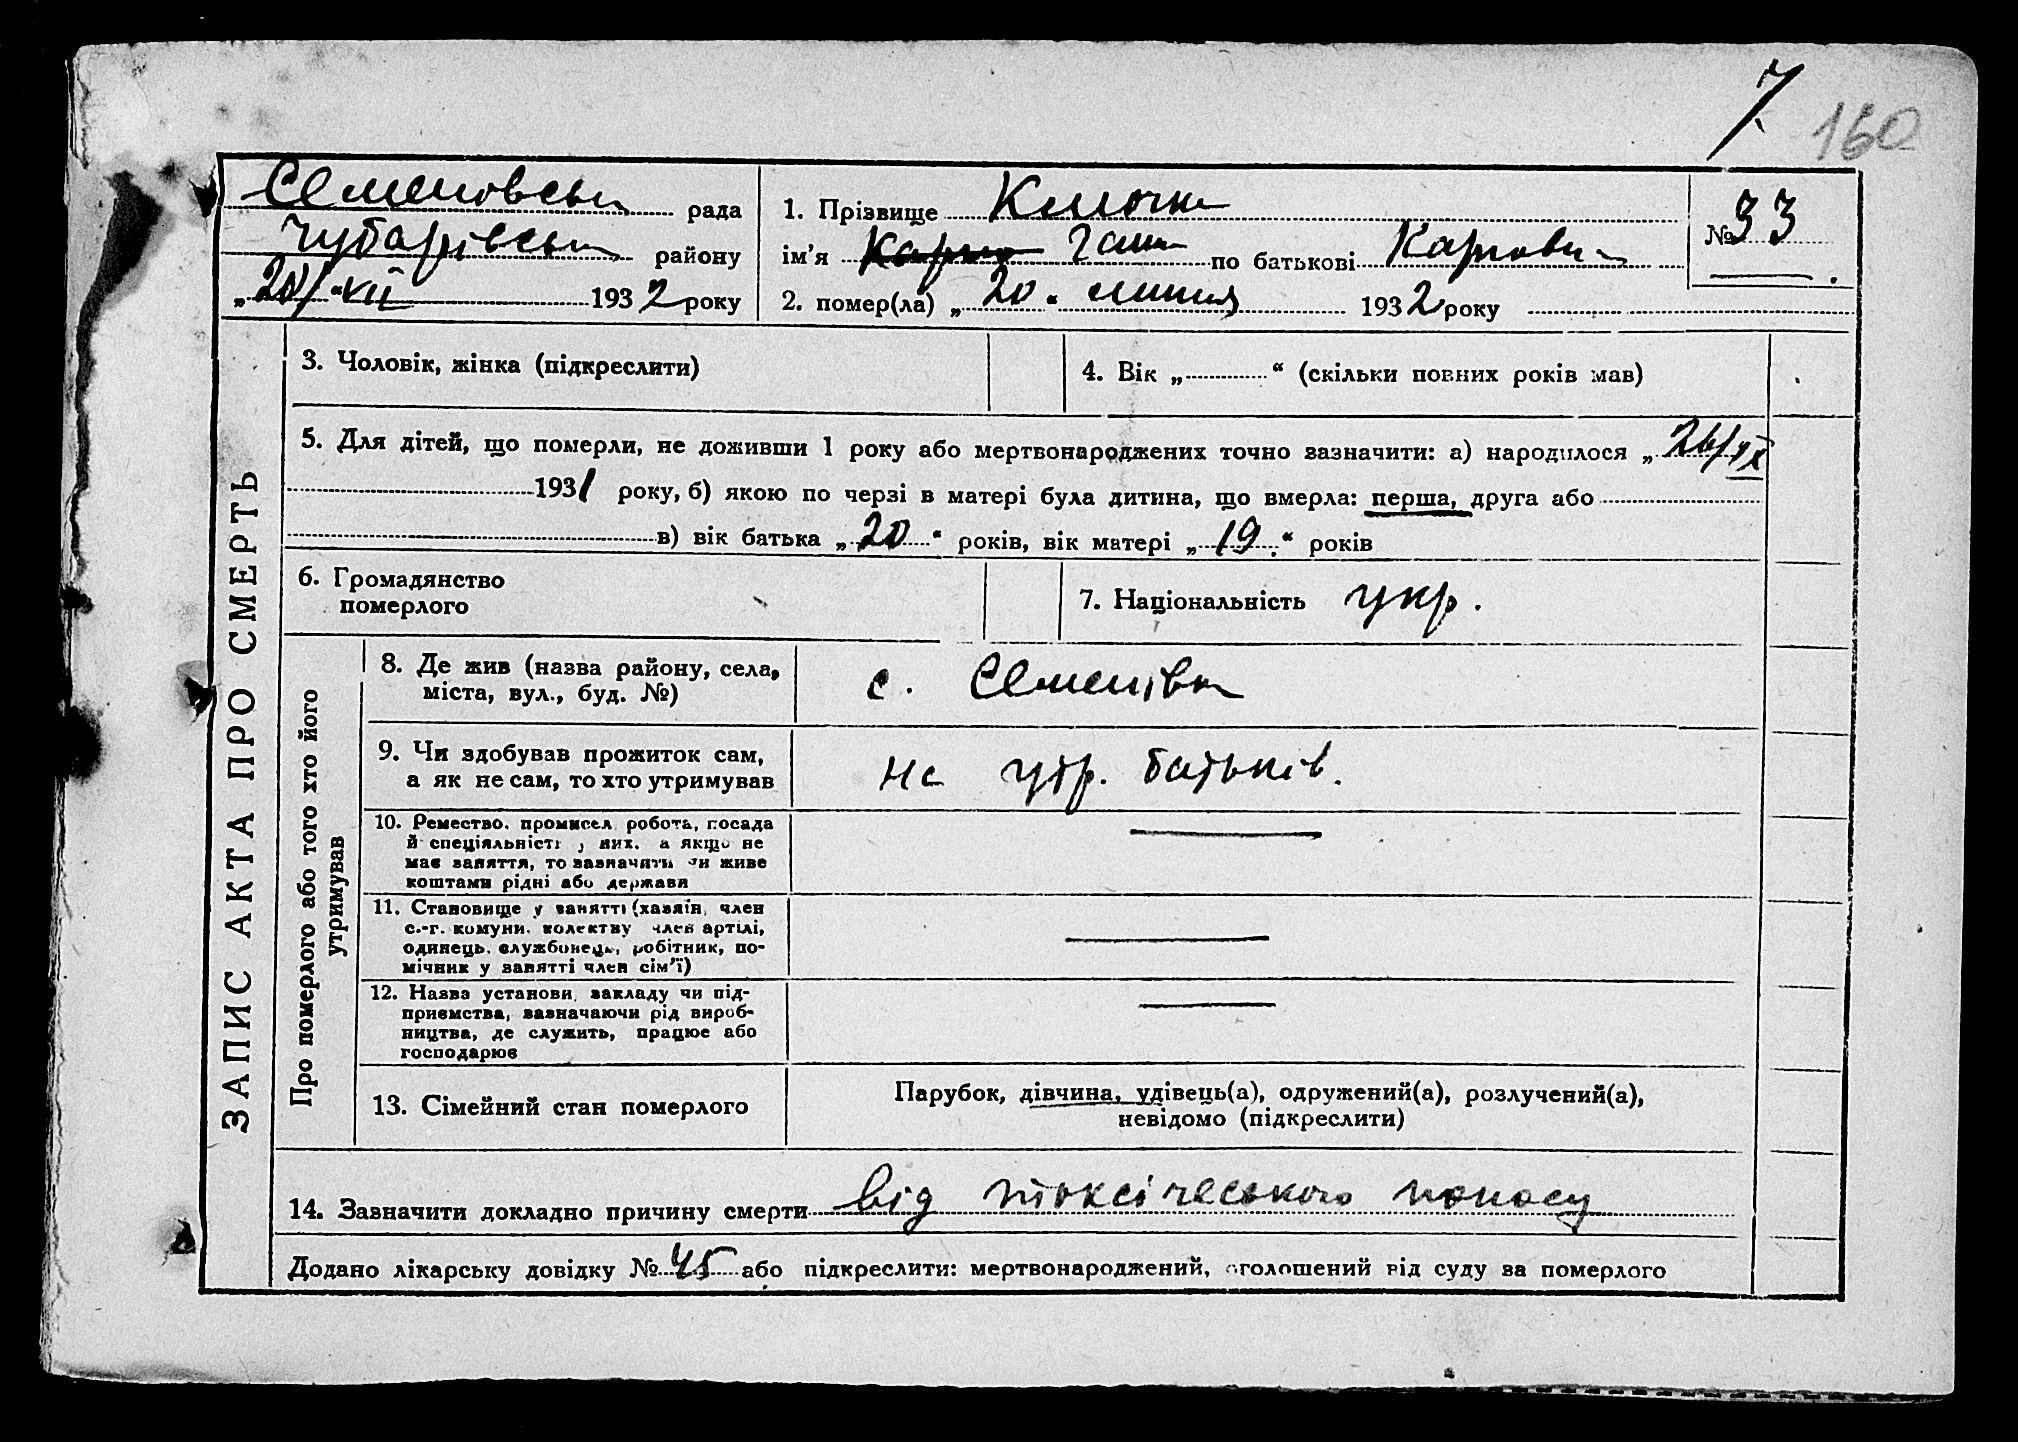 7 160
Семеновськ рада
Чубарівськ району
„20/“ VII 1932 року
1. Прізвище Клочка
ім’я Карпо Ганна по батькові Карповн
2. помер(ла) „20“ липня 1932 року
№ 33
ЗАПИС АКТА ПРО СМЕРТЬ
3. Чоловік, жінка (підкреслити)
4. Вік „ “ (скільки повних років мав)
5. Для дітей, що померли, не доживши 1 року або мертвонароджених точно зазначити: а) народилося „26/ІХ
1931 року, б) якою по черзі в матері була дитина, що вмерла: перша, друга або
в) вік батька „20“ років, вік матері „19“ років
6. Громадянство
померлого
7. Національність укр.
Про померлого або того хто його
утримував
8. Де жив (назва району, села,
міста, вул., буд. №)
с. Семенівка
9. Чи здобував прожиток сам,
а як не сам, то хто утримував
на утр. батьків.
10. Ремество, промисел, робота, посада
й спеціяльність у них, а якщо не
має заняття, то зазначити чи живе
коштами рідні або держави
11. Становище у занятті (хазяїн, член
с.-г. комуни, колективу член артілі,
одинець, службовець, робітник, по-
мічник у занятті член сім’ї)
12. Назва установи, закладу чи під-
приємства, зазначаючи рід вироб-
ництва, де служить, працює або
господарює
13. Сімейний стан померлого
Парубок, дівчина, удівець(а), одружений(а), розлучений(а),
невідомо (підкреслити)
14. Зазначити докладно причину смерти від токсічеського поносу
Додано лікарську довідку № 45 або підкреслити: мертвонароджений, оголошений від суду за померлого